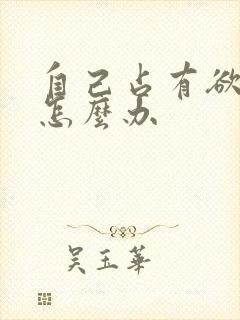 自己占有欲
怎麼办
吴玉華